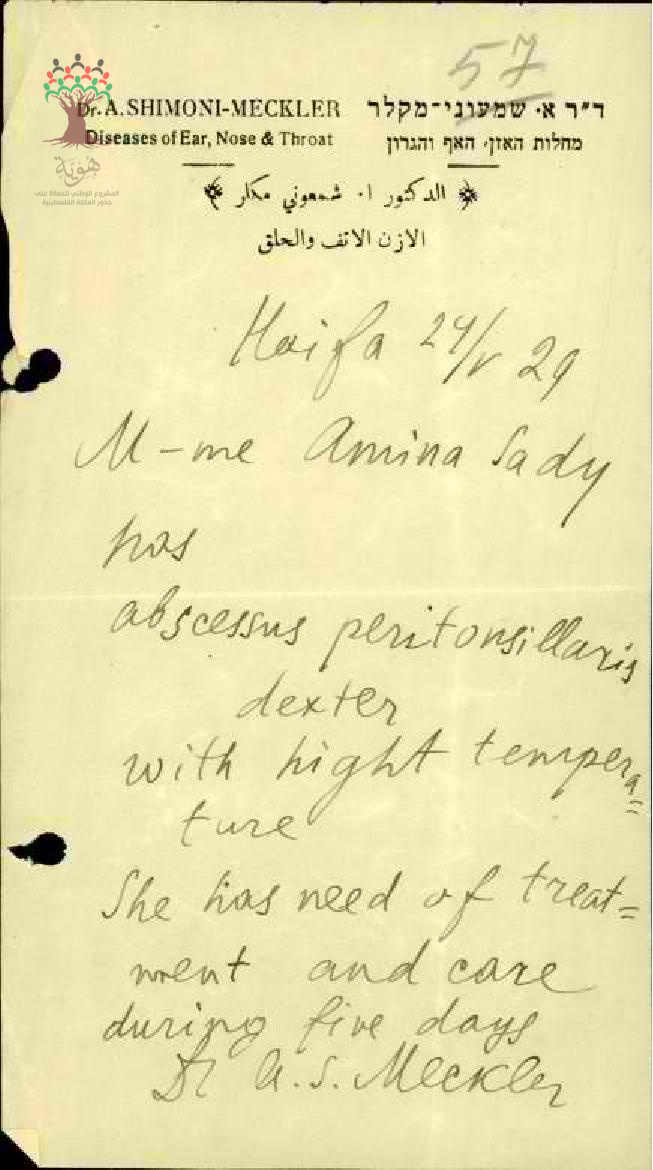 57
Dr. A. SHIMONI-MECKLER
Diseases of Ear, Nose & Throat
ד״ר א. שמעוני־מקלר
מחלות האזן, האף והגרון
هوية
المشروع الوطني للحفاظ على
جذور العائلة الفلسطينية
الدكتور ا. شمعوني مكلر
الازن الانف والحلق
Haifa 24/V 29
M-me Amina Sady
has
abscessus peritonsillaris
dexter
with hight tempera=
ture
She has need of treat=
ment and care
during five days
Dr A. S. Meckler